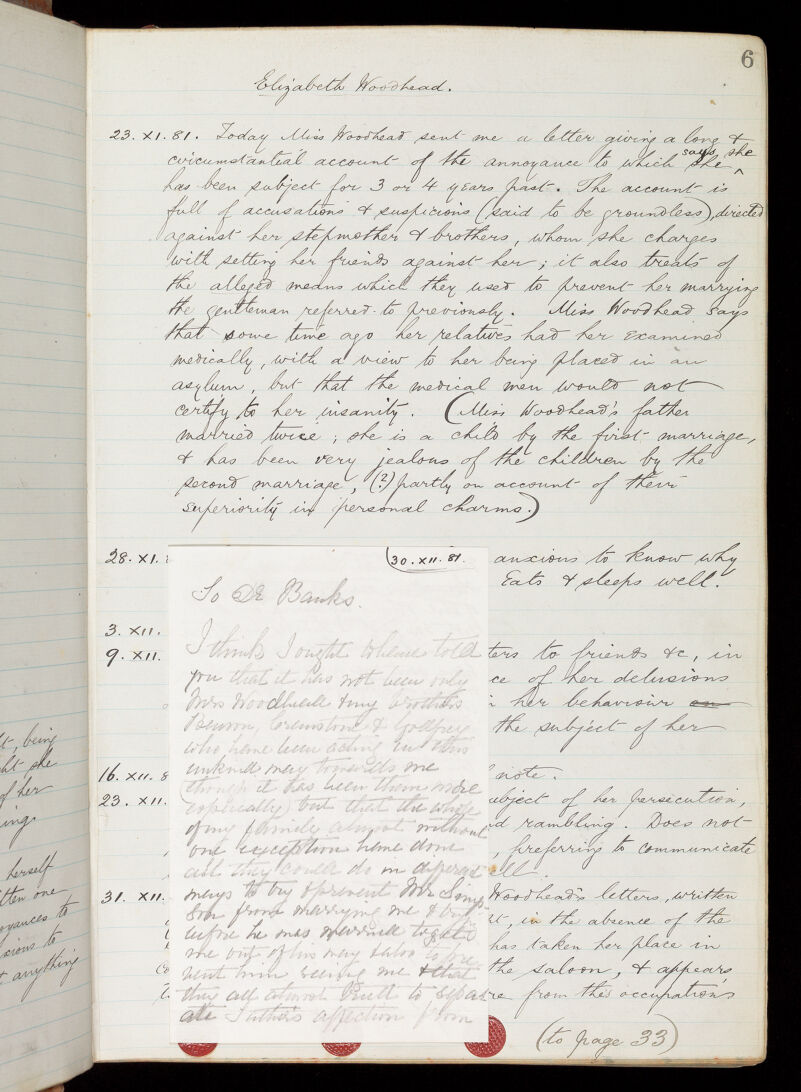 6
Elizabeth Woodhead.
23. XI. 81. Today Miss Woodhead sent me a letter giving a long &
circumstantial account of the annoyance to which says she
has been subject for 3 or 4 years past. The account is
full of accusations & suspicions (said to be groundless), directed
against her stepmother & brothers, whom she charges
with setting her friends against her; it also treats of
the alleged means which they used to prevent her marrying
the gentleman referred to previously. Miss Woodhead says
that some time ago her relatives had her examined
medically, with a view to her being placed in an
asylum, but that the medical men would not
certify to her insanity. (Miss Woodhead's father
married twice; she is a child by the first marriage,
& has been very jealous of the children by the
second marriage, (?) partly on account of their
superiority in personal charms.)
28. XI. anxious to know why
Eats & sleeps well.
3. XII.
9. XII. ters to friends &c, in
ce of her delusions
her behaviour on
the subject of her
16. XII. 8 note.
23. XII. ubject of her persecution,
d rambling. Does not
, preferring to communicate
ell.
31. XII. Woodhead's letters, written
t, in the absence of the
has taken her place in
the saloon, & appears
re from the occupations
(to page 33)
30. XII. 81.
To Dr Banks.
I think I ought to have told
you that it has not been only
Mrs Woodhead & my brothers
& Godfrey
who have been acting in this
unkind way towards me
(though it has been them more
especially) but that the whole
of my family almost without
one exception have done
all they could do in different
ways to try & prevent Mr Simp
son from marrying me &
before he was married to get
me out of his way & also to pre
vent him seeing me & that
they all almost tried to separ
ate Father's affection from
t, being
ht she
of her
ing
herself
tten one
oyances to
sions to
& anything